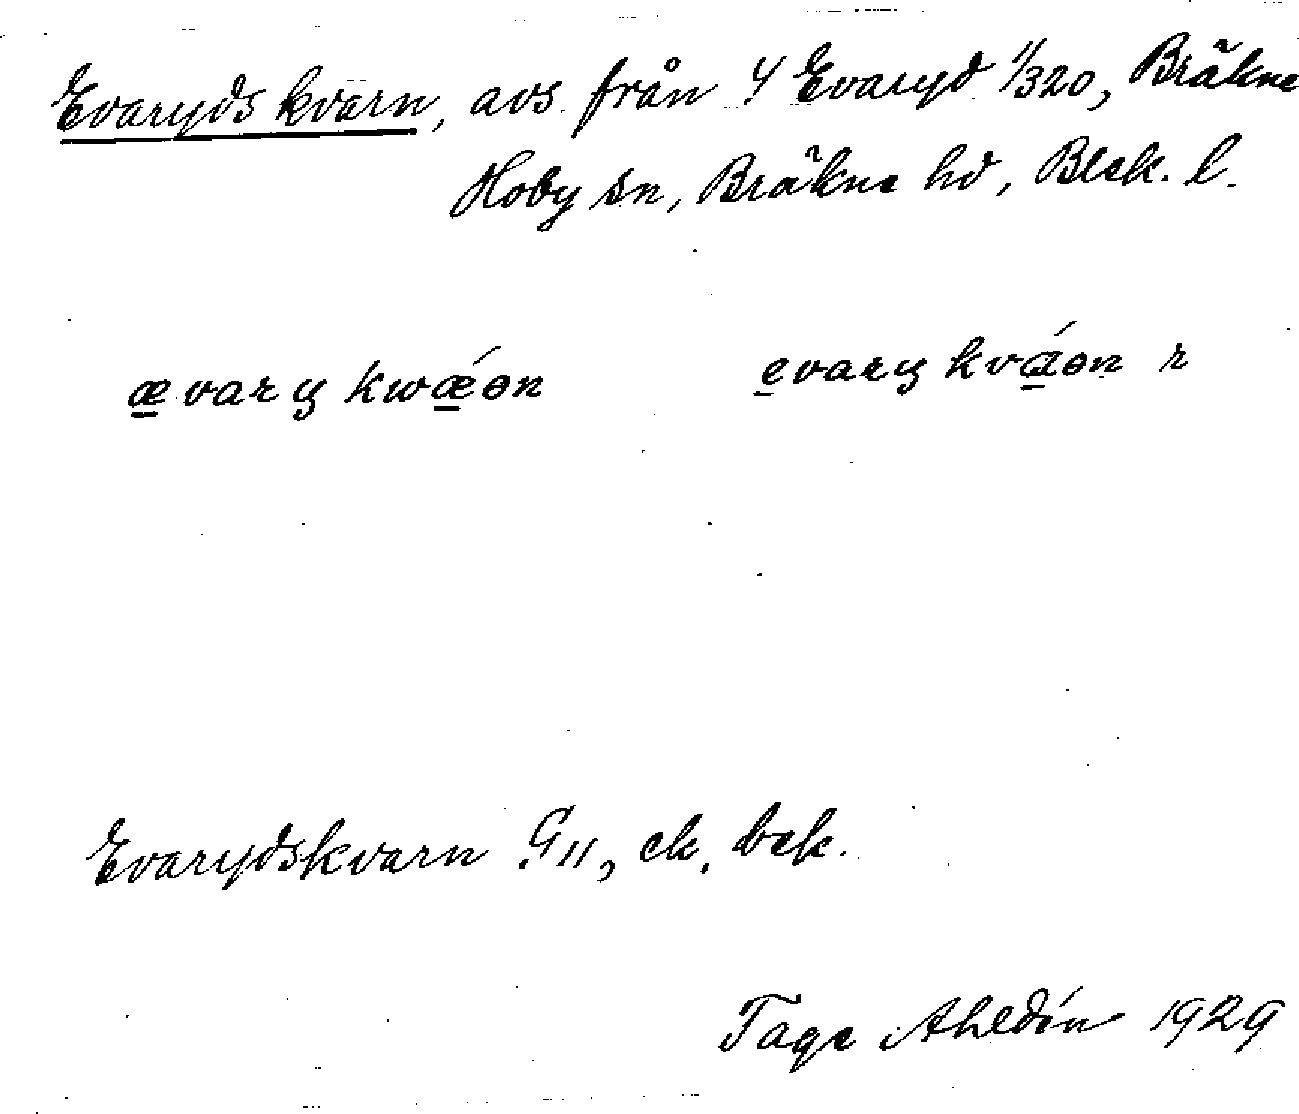 Evaryds kvarn, avs. från 4 Evaryd 11/320, Bräkne
Hoby sn, Bräkne hd, Blek. l.
ævary kwǽɵn evary kváɵn r
Evarydskvarn G11, ek. bek.
Tage Ahldén 1929